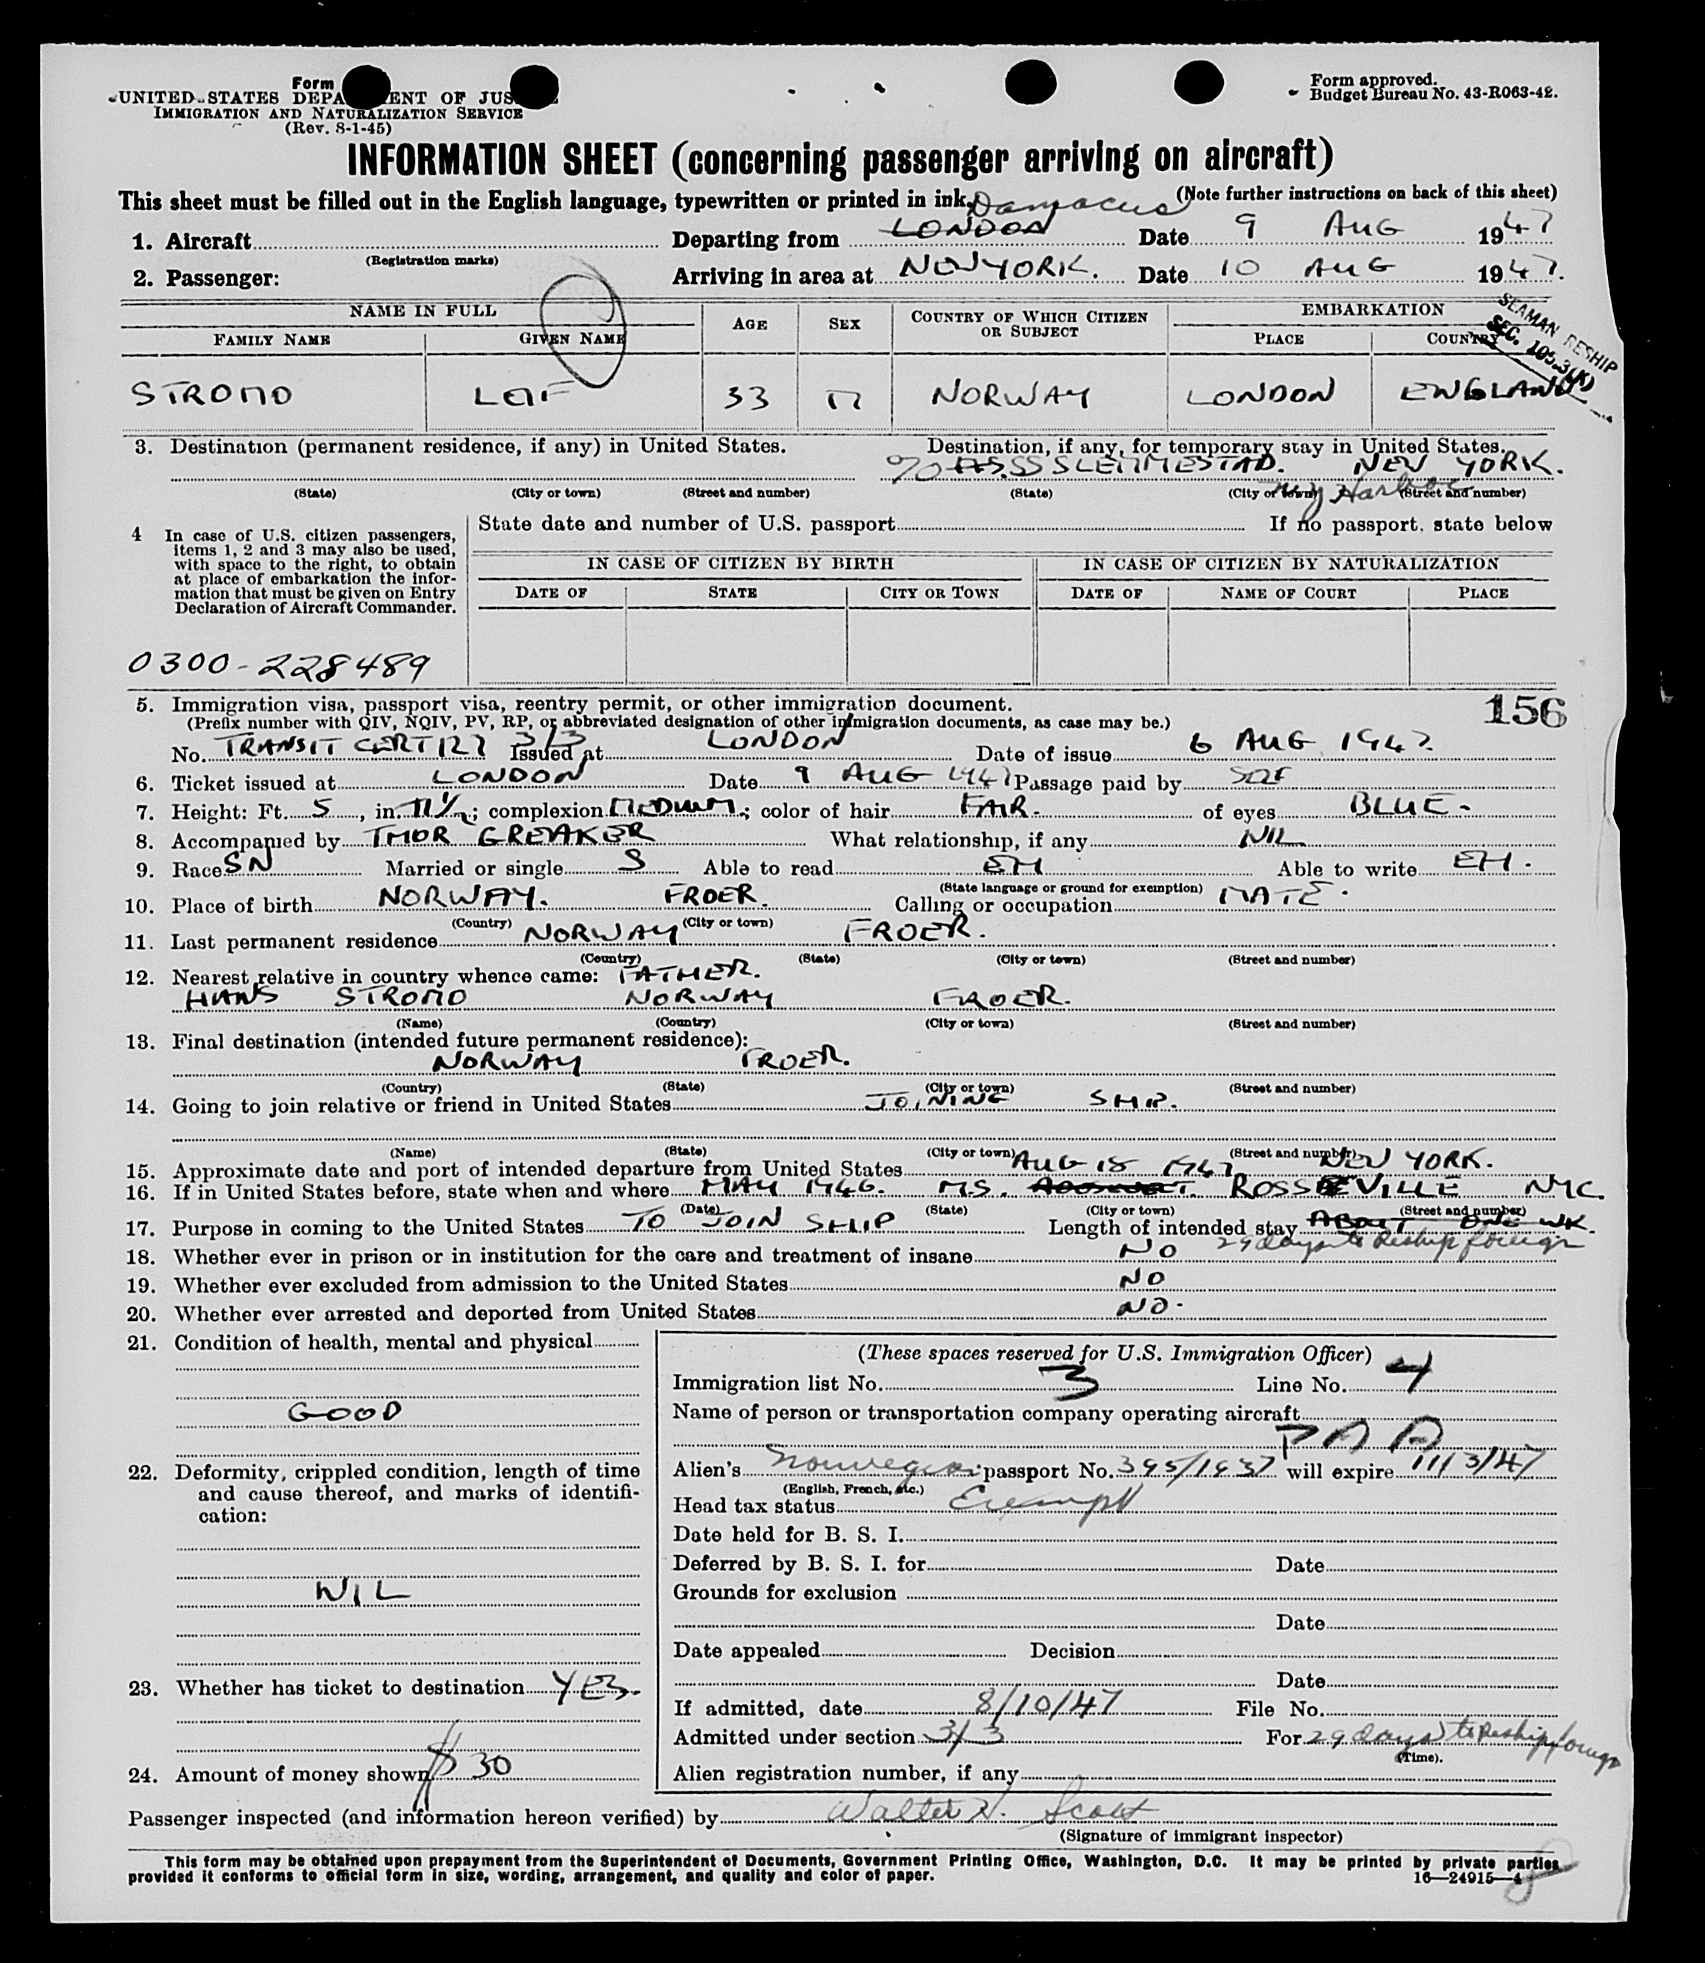 Form
UNITED STATES DEPA ENT OF JUS
IMMIGRATION AND NATURALIZATION SERVICE
(Rev. 8-1-45)
Form approved.
Budget Bureau No. 43-R063-42.
INFORMATION SHEET (concerning passenger arriving on aircraft)
This sheet must be filled out in the English language, typewritten or printed in ink. (Note further instructions on back of this sheet)
Damacus
1. Aircraft Departing from LONDON Date 9 AUG 1947
(Registration marks)
2. Passenger: Arriving in area at NEW YORK. Date 10 AUG 1947.
NAME IN FULL AGE SEX COUNTRY OF WHICH CITIZEN OR SUBJECT EMBARKATION
FAMILY NAME GIVEN NAME PLACE COUNTRY
SEAMAN RESHIP
SEC. 105.3(K)
STROMO LEIF 33 M NORWAY LONDON ENGLAND
3. Destination (permanent residence, if any) in United States. Destination, if any, for temporary stay in United States.
% SS SLEMMESTAD. NEW YORK.
(State) (City or town) (Street and number) (State) (City or town) (Street and number)
NY Harbor
4 In case of U.S. citizen passengers, items 1, 2 and 3 may also be used, with space to the right, to obtain at place of embarkation the information that must be given on Entry Declaration of Aircraft Commander.
State date and number of U.S. passport If no passport, state below
IN CASE OF CITIZEN BY BIRTH IN CASE OF CITIZEN BY NATURALIZATION
DATE OF STATE CITY OR TOWN DATE OF NAME OF COURT PLACE
0300-228489
5. Immigration visa, passport visa, reentry permit, or other immigration document. 156
(Prefix number with QIV, NQIV, PV, RP, or abbreviated designation of other immigration documents, as case may be.)
No. TRANSIT CERT 127 3/3 Issued at LONDON Date of issue 6 AUG 1947.
6. Ticket issued at LONDON Date 9 AUG 1947 Passage paid by SELF
7. Height: Ft. 5, in. 11½; complexion MEDIUM; color of hair FAIR. of eyes BLUE.
8. Accompanied by THOR GREAKER What relationship, if any NIL
9. Race SN Married or single S Able to read EH Able to write EH.
(State language or ground for exemption)
10. Place of birth NORWAY. FROER. Calling or occupation MATE.
(Country) (City or town)
11. Last permanent residence NORWAY FROER.
(Country) (State) (City or town) (Street and number)
12. Nearest relative in country whence came: FATHER.
HANS STROMO NORWAY FROER.
(Name) (Country) (City or town) (Street and number)
13. Final destination (intended future permanent residence):
NORWAY FROER.
(Country) (State) (City or town) (Street and number)
14. Going to join relative or friend in United States JOINING SHIP.
(Name) (State) (City or town) (Street and number)
15. Approximate date and port of intended departure from United States AUG 15 1947 NEW YORK.
16. If in United States before, state when and where MAY 1946. M.S. ROSSEVILLE NYC.
(Date) (State) (City or town) (Street and number)
17. Purpose in coming to the United States TO JOIN SHIP Length of intended stay ABOUT ONE WK.
29 days to Reship foreign
18. Whether ever in prison or in institution for the care and treatment of insane NO
19. Whether ever excluded from admission to the United States NO
20. Whether ever arrested and deported from United States NO.
21. Condition of health, mental and physical
GOOD
22. Deformity, crippled condition, length of time and cause thereof, and marks of identification:
NIL
23. Whether has ticket to destination YES.
24. Amount of money shown $30
(These spaces reserved for U.S. Immigration Officer)
Immigration list No. 3 Line No. 4
Name of person or transportation company operating aircraft
PAA
Alien's Norwegian passport No. 395/1937 will expire 11/3/47
(English, French, etc.)
Head tax status Exempt
Date held for B. S. I.
Deferred by B. S. I. for Date
Grounds for exclusion
Date
Date appealed Decision
Date
If admitted, date 8/10/47 File No.
Admitted under section 3/3 For 29 days to Reship foreign
(Time).
Alien registration number, if any
Passenger inspected (and information hereon verified) by Walter H. Scott
(Signature of immigrant inspector)
This form may be obtained upon prepayment from the Superintendent of Documents, Government Printing Office, Washington, D.C. It may be printed by private parties
provided it conforms to official form in size, wording, arrangement, and quality and color of paper. 16—24915—4